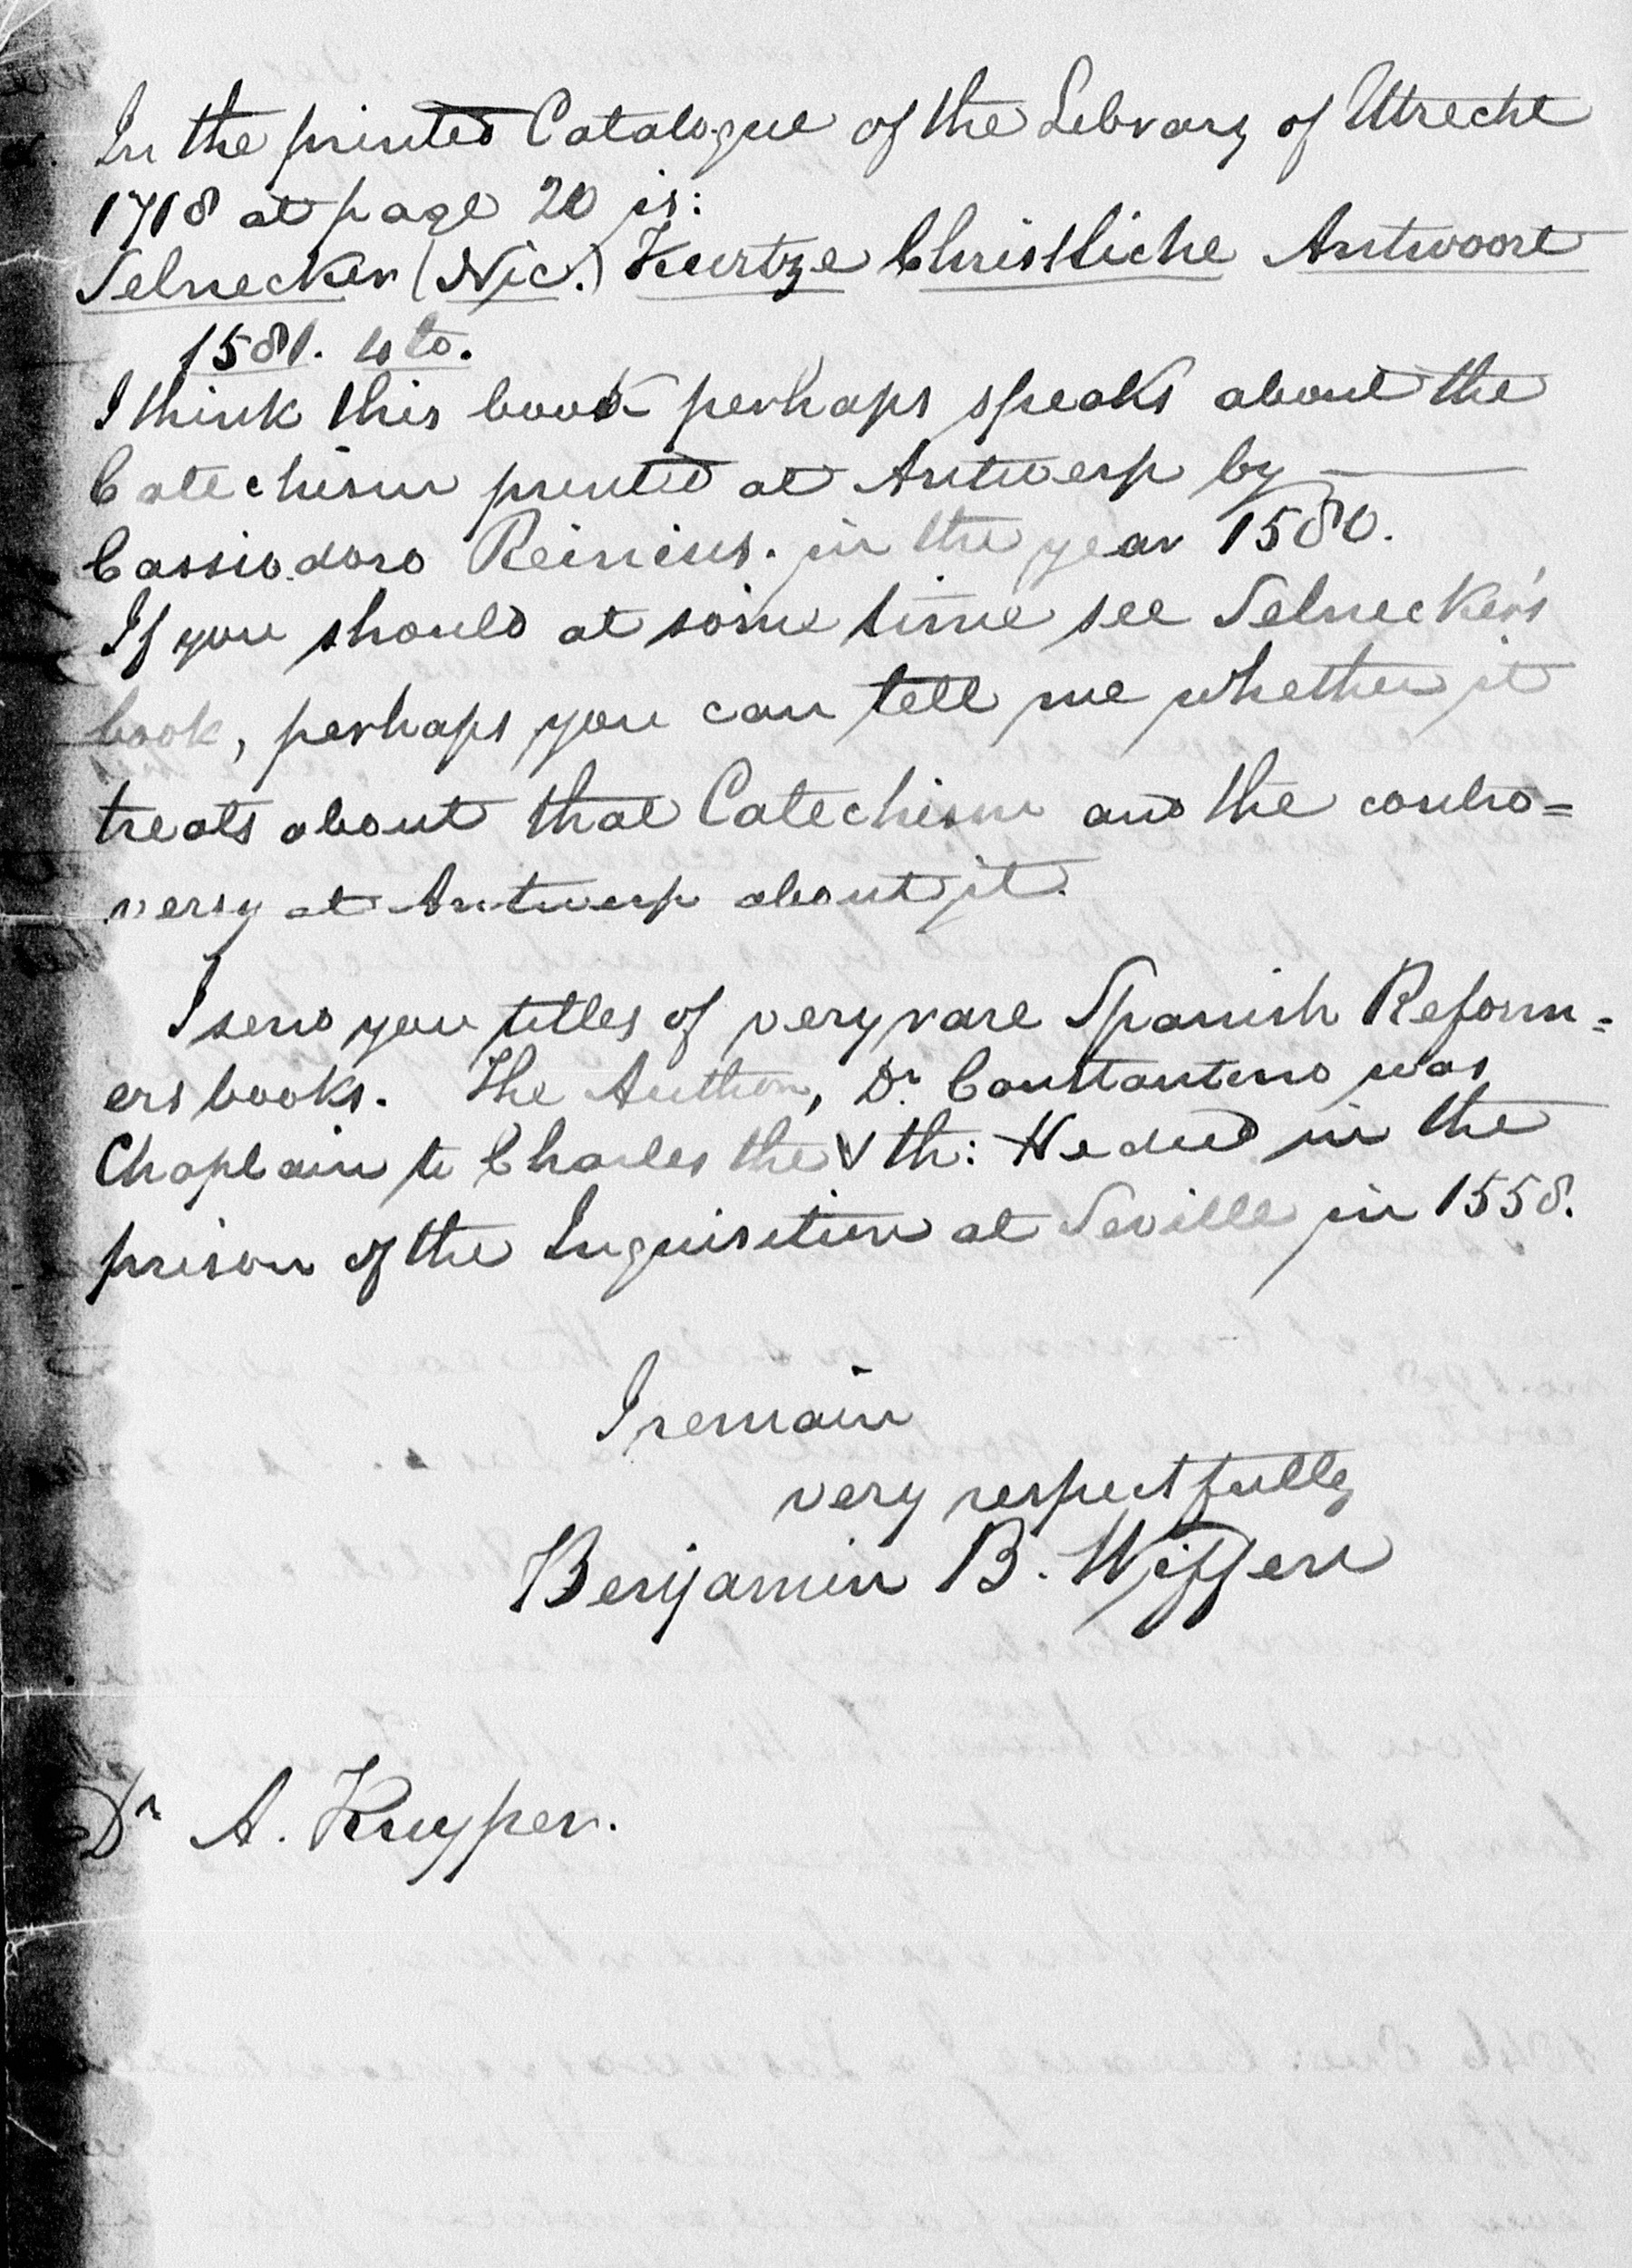 In the printed Catalogue of the Library of Utrecht
1718 at page 20 is:
Selnecker (Nic.) Kurtze Christliche Antwoort
1581. 4to.
I think this book perhaps speaks about the
Catechism printed at Antwerp by —
Cassiodoro Reinius. in the year 1580.
If you should at some time see Selnecker's
book, perhaps you can tell me whether it
treats about that Catechism and the contro=
versy at Antwerp about it.
I send you titles of very rare Spanish Reform=
ers books. The Author, Dr. Constantino was
Chaplain to Charles the Vth: He died in the
prison of the Inquisition at Seville in 1558.
I remain
very respectfully
Benjamin B. Wiffen
Dr A. Kuyper.